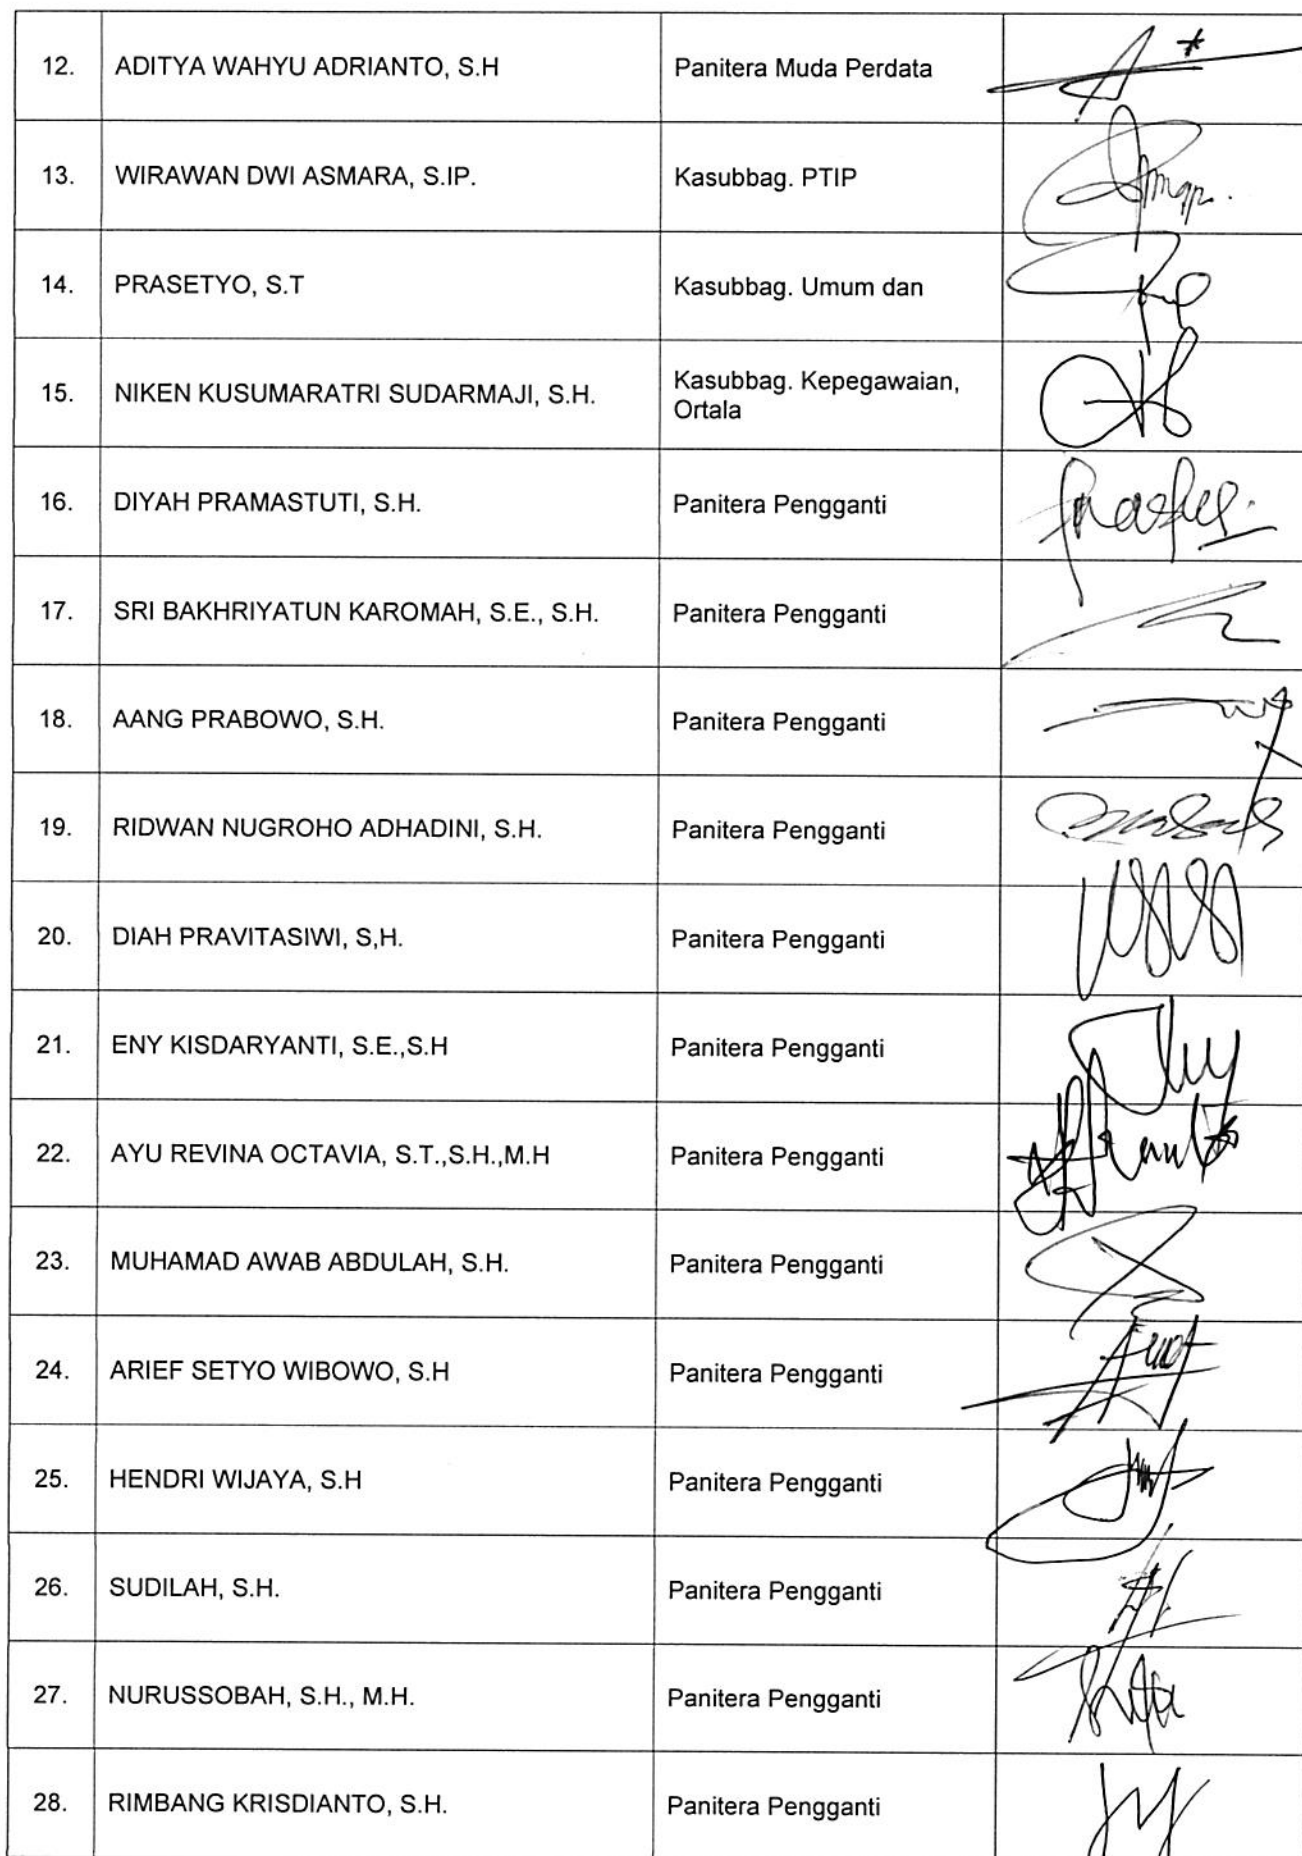 12. ADITYA WAHYU ADRIANTO, S.H Panitera Muda Perdata
13. WIRAWAN DWI ASMARA, S.IP. Kasubbag. PTIP
14. PRASETYO, S.T Kasubbag. Umum dan
15. NIKEN KUSUMARATRI SUDARMAJI, S.H. Kasubbag. Kepegawaian,
Ortala
16. DIYAH PRAMASTUTI, S.H. Panitera Pengganti
17. SRI BAKHRIYATUN KAROMAH, S.E., S.H. Panitera Pengganti
18. AANG PRABOWO, S.H. Panitera Pengganti
19. RIDWAN NUGROHO ADHADINI, S.H. Panitera Pengganti
20. DIAH PRAVITASIWI, S,H. Panitera Pengganti
21. ENY KISDARYANTI, S.E.,S.H Panitera Pengganti
22. AYU REVINA OCTAVIA, S.T.,S.H.,M.H Panitera Pengganti
23. MUHAMAD AWAB ABDULAH, S.H. Panitera Pengganti
24. ARIEF SETYO WIBOWO, S.H Panitera Pengganti
25. HENDRI WIJAYA, S.H Panitera Pengganti
26. SUDILAH, S.H. Panitera Pengganti
27. NURUSSOBAH, S.H., M.H. Panitera Pengganti
28. RIMBANG KRISDIANTO, S.H. Panitera Pengganti